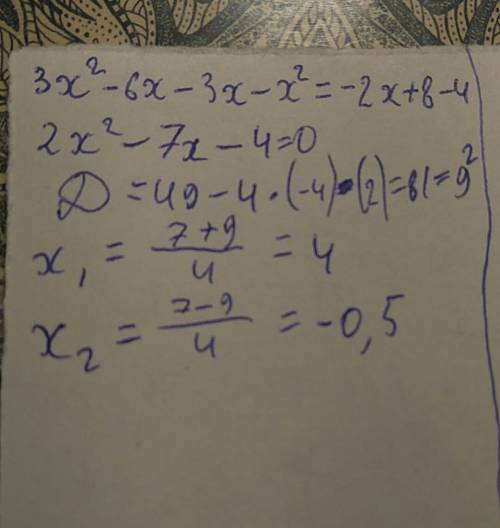 3x² - 6x - 3x - x² = -2x + 8 - 4
2x² - 7x - 4 = 0
D = 49 - 4 · (-4) · (2) = 81 = 9²
x₁ = (7 + 9)/4 = 4
x₂ = (7 - 9)/4 = -0,5